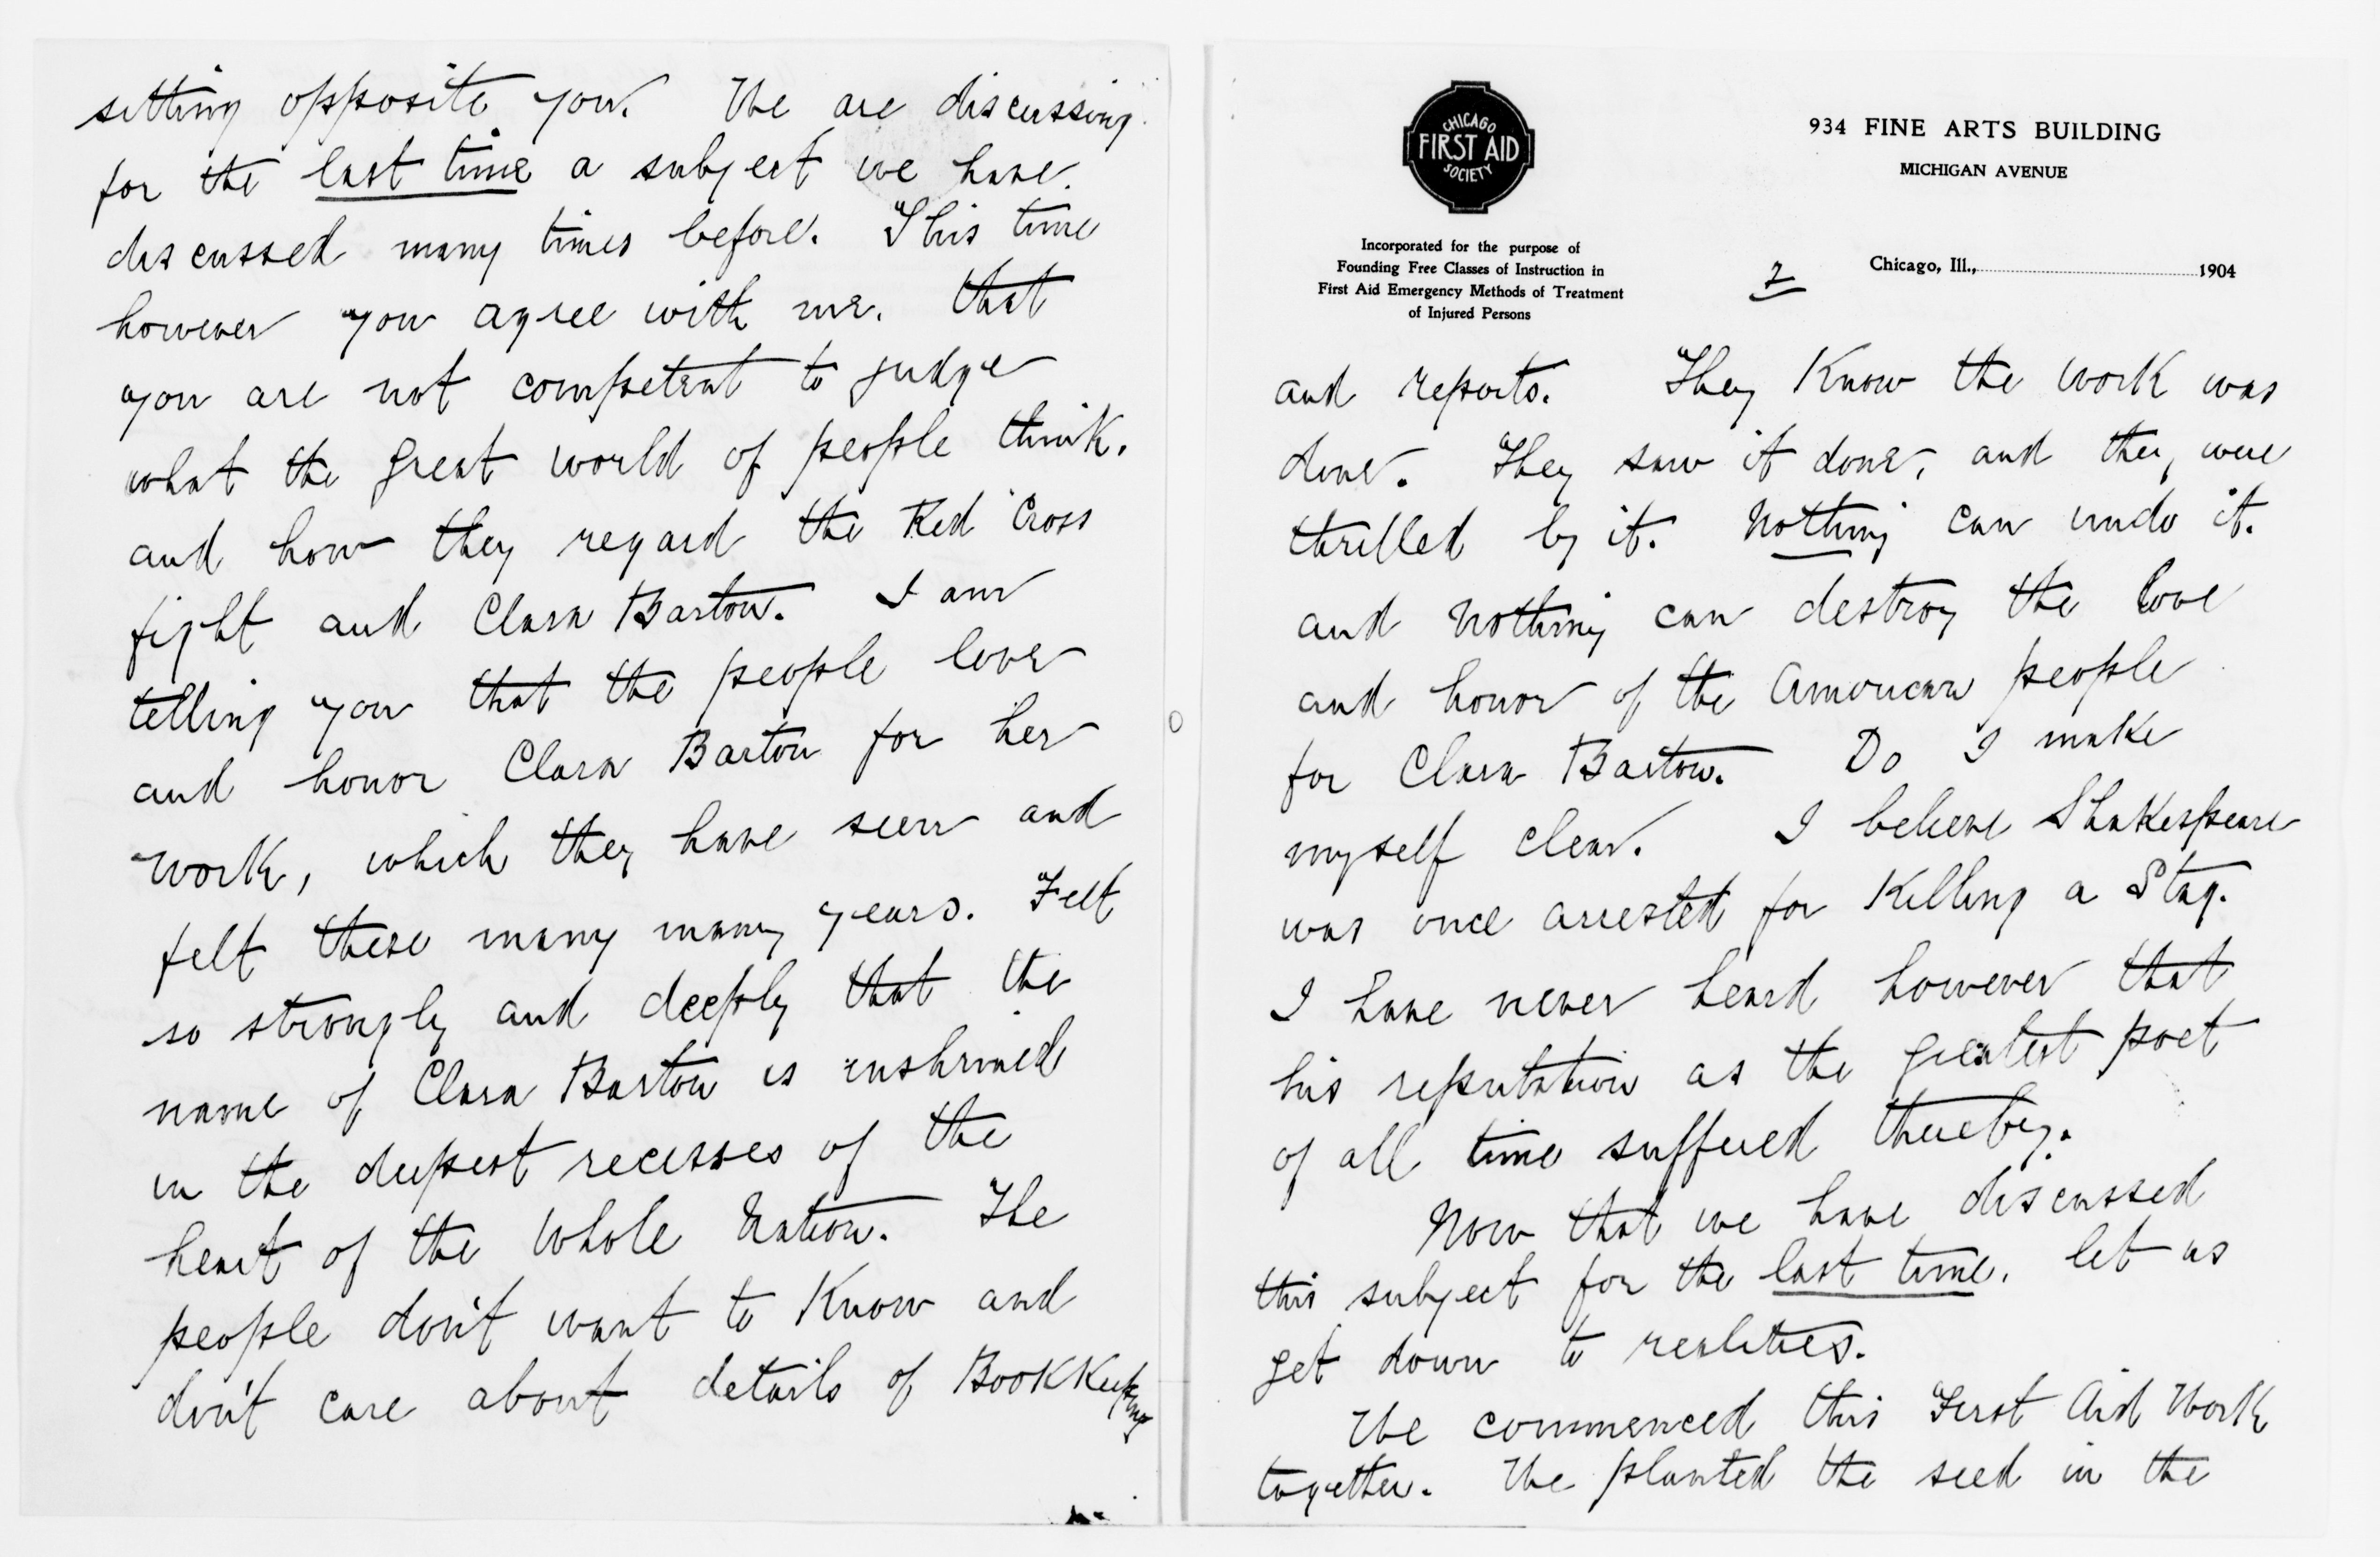 sitting opposite you. We are discussing
for the last time a subject we have
discussed many times before. This time
however you agree with me. that
you are not competent to judge
what the great world of people think.
and how they regard the Red Cross
fight and Clara Barton. I am
telling you that the people love
and honor Clara Barton for her
work, which they have seen and
felt these many many years. Felt
so strongly and deeply that the
name of Clara Barton is enshrined
in the deepest recesses of the
heart of the whole Nation. The
people don't want to know and
don't care about details of BookKeeping
CHICAGO
FIRST AID
SOCIETY
934 FINE ARTS BUILDING
MICHIGAN AVENUE
Incorporated for the purpose of
Founding Free Classes of Instruction in
First Aid Emergency Methods of Treatment
of Injured Persons
2
Chicago, Ill., 1904
and reports. They Know the work was
done. They saw it done, and they were
thrilled by it. Nothing can undo it.
and nothing can destroy the love
and honor of the American people
for Clara Barton. Do I make
myself clear. I believe Shakespeare
was once arrested for Killing a Stag.
I have never heard however that
his reputation as the greatest poet
of all time suffered thereby.
Now that we have discussed
this subject for the last time, let us
get down to realities.
We commenced this First Aid Work
together. We planted the seed in the